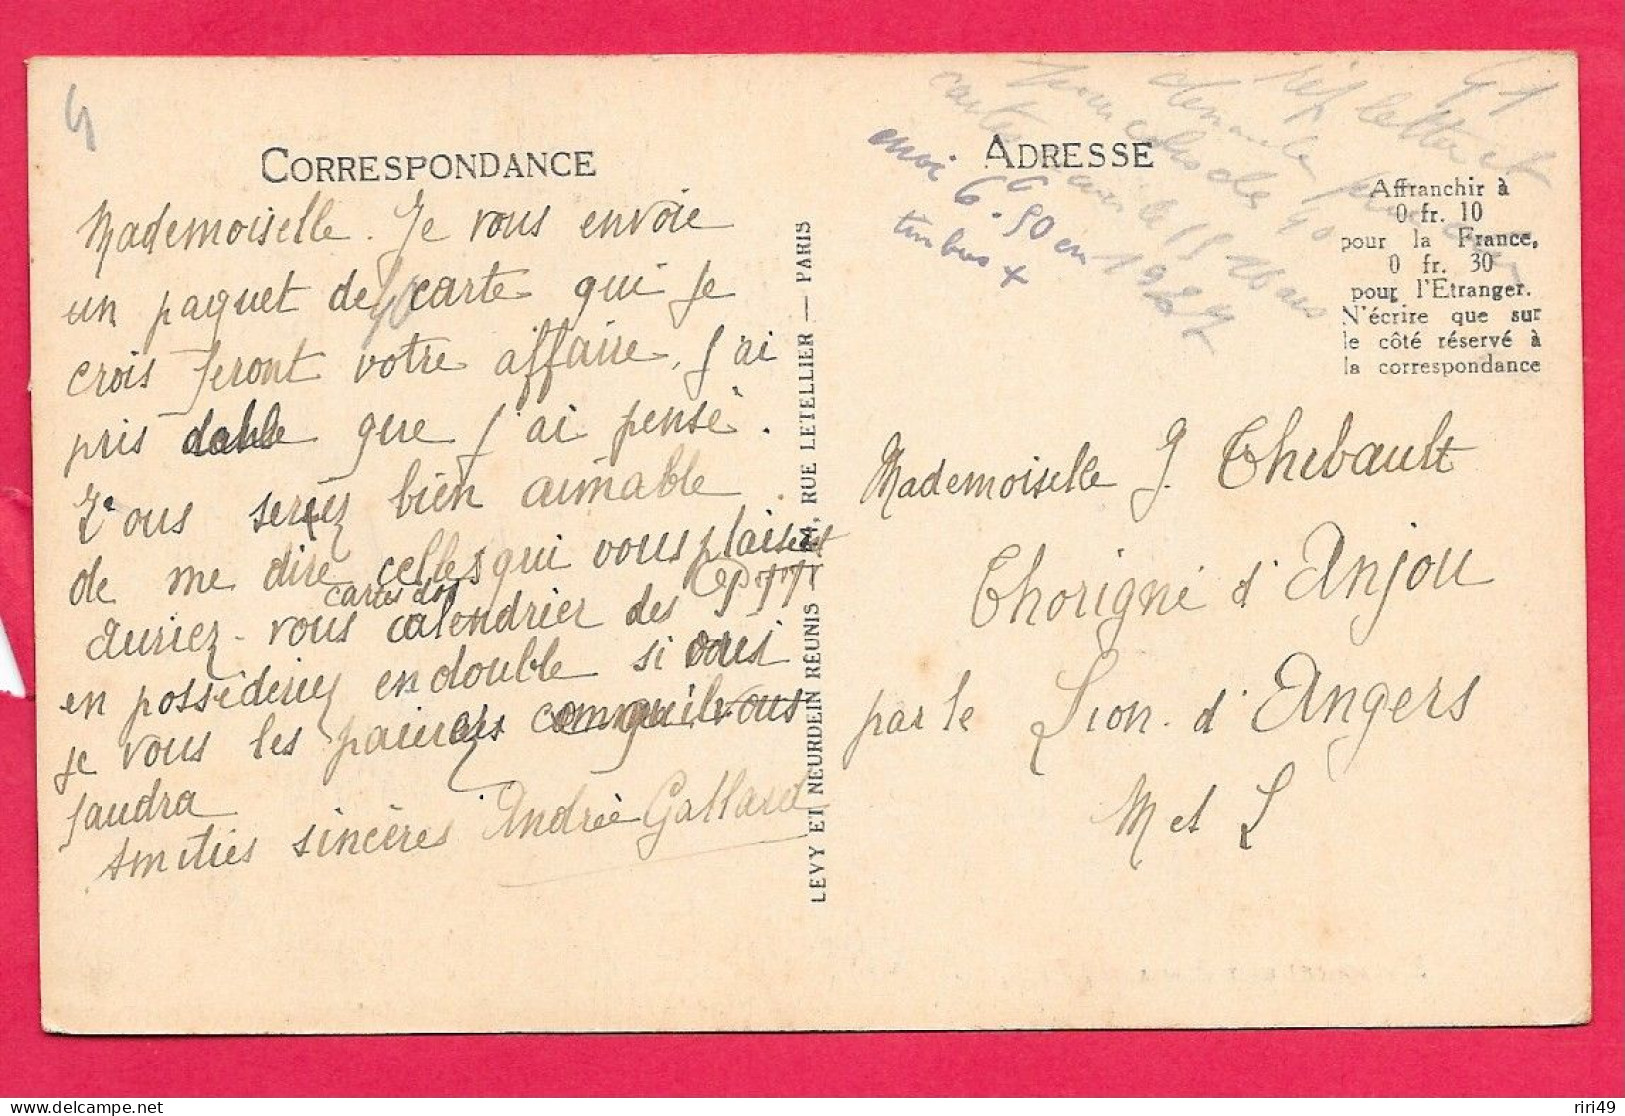 4
CORRESPONDANCE
Mademoiselle. Je vous envoie
un paquet de 40 carte qui je
crois feront votre affaire, j'ai
pris que j'ai pensé.
Vous seriez bien aimable
de me dire celles qui vous plaisent
cartes dos
auriez-vous calendrier des PTT
en possederiez en double si vous
je vous les
faudra
Amitiés sincères Andrée Gallard
LEVY ET NEURDEIN REUNIS — 44, RUE LETELLIER — PARIS
41
rep lettre et
demande
de 40
cartes le 15 Mars
1927
envoi 6f.50 en
timbres +
ADRESSE
Affranchir à
0 fr. 10
pour la France,
0 fr. 30
pour l'Etranger.
N'écrire que sur
le côté réservé à
la correspondance
Mademoiselle J. Thebault
Thorigné d'Anjou
par le Lion d'Angers
M et L
delcampe.net
riri49